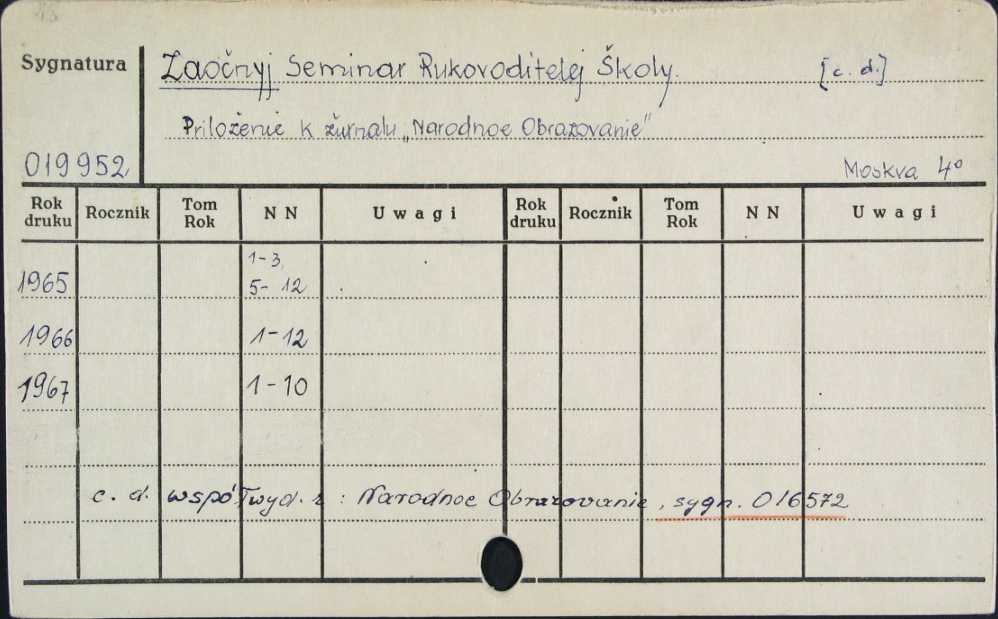 Sygnatura
Zaočnyj Seminar Rukovoditelej Školy. [c. d.]
Priloženie k žurnalu „Narodnoe Obrazovanie"
019952
Moskva 4°
Rok druku Rocznik Tom Rok N N Uwagi Rok druku Rocznik Tom Rok N N Uwagi
1-3,
1965 5- 12
1966 1-12
1967 1-10
c. d. współwyd. z : Narodnoe Obrazovanie, sygn. 016572